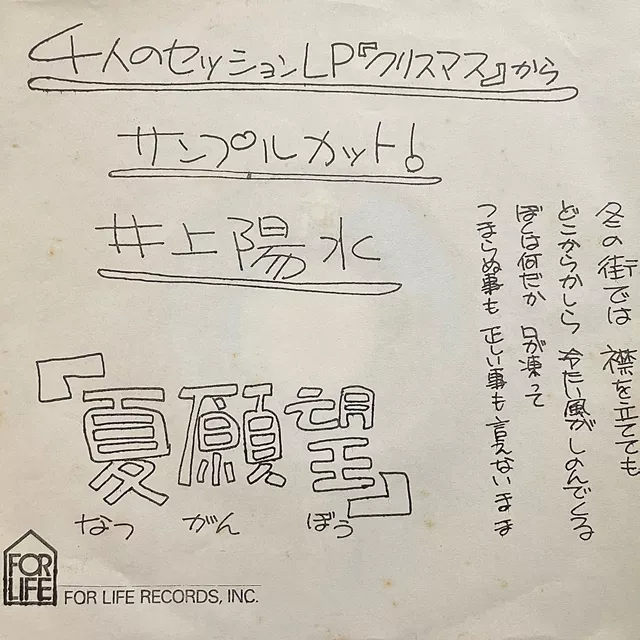 4人のセッションLP『クリスマス』から
サンプルカット!
井上陽水
『夏願望』
なつ がん ぼう
冬の街では 襟を立てても
どこからかしら 冷たい風がしのんでくる
ぼくは何だか 口が凍って
つまらぬ事も 正しい事も 言えないまま
FOR LIFE
FOR LIFE RECORDS, INC.